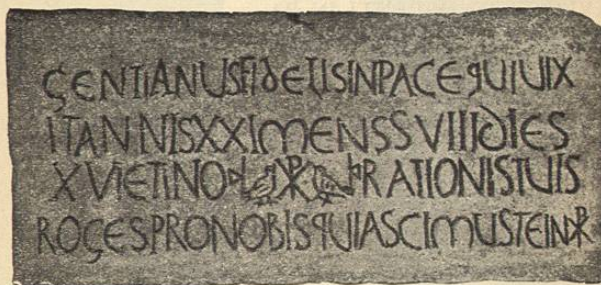 GENTIANUSFIDELISINPACEQUIUIX
ITANNISXXIMENSSVIIIDIES
XVIETINO ☧ RATIONISTUIS
ROGESPRONOBISQUIASCIMUSTEIN☧